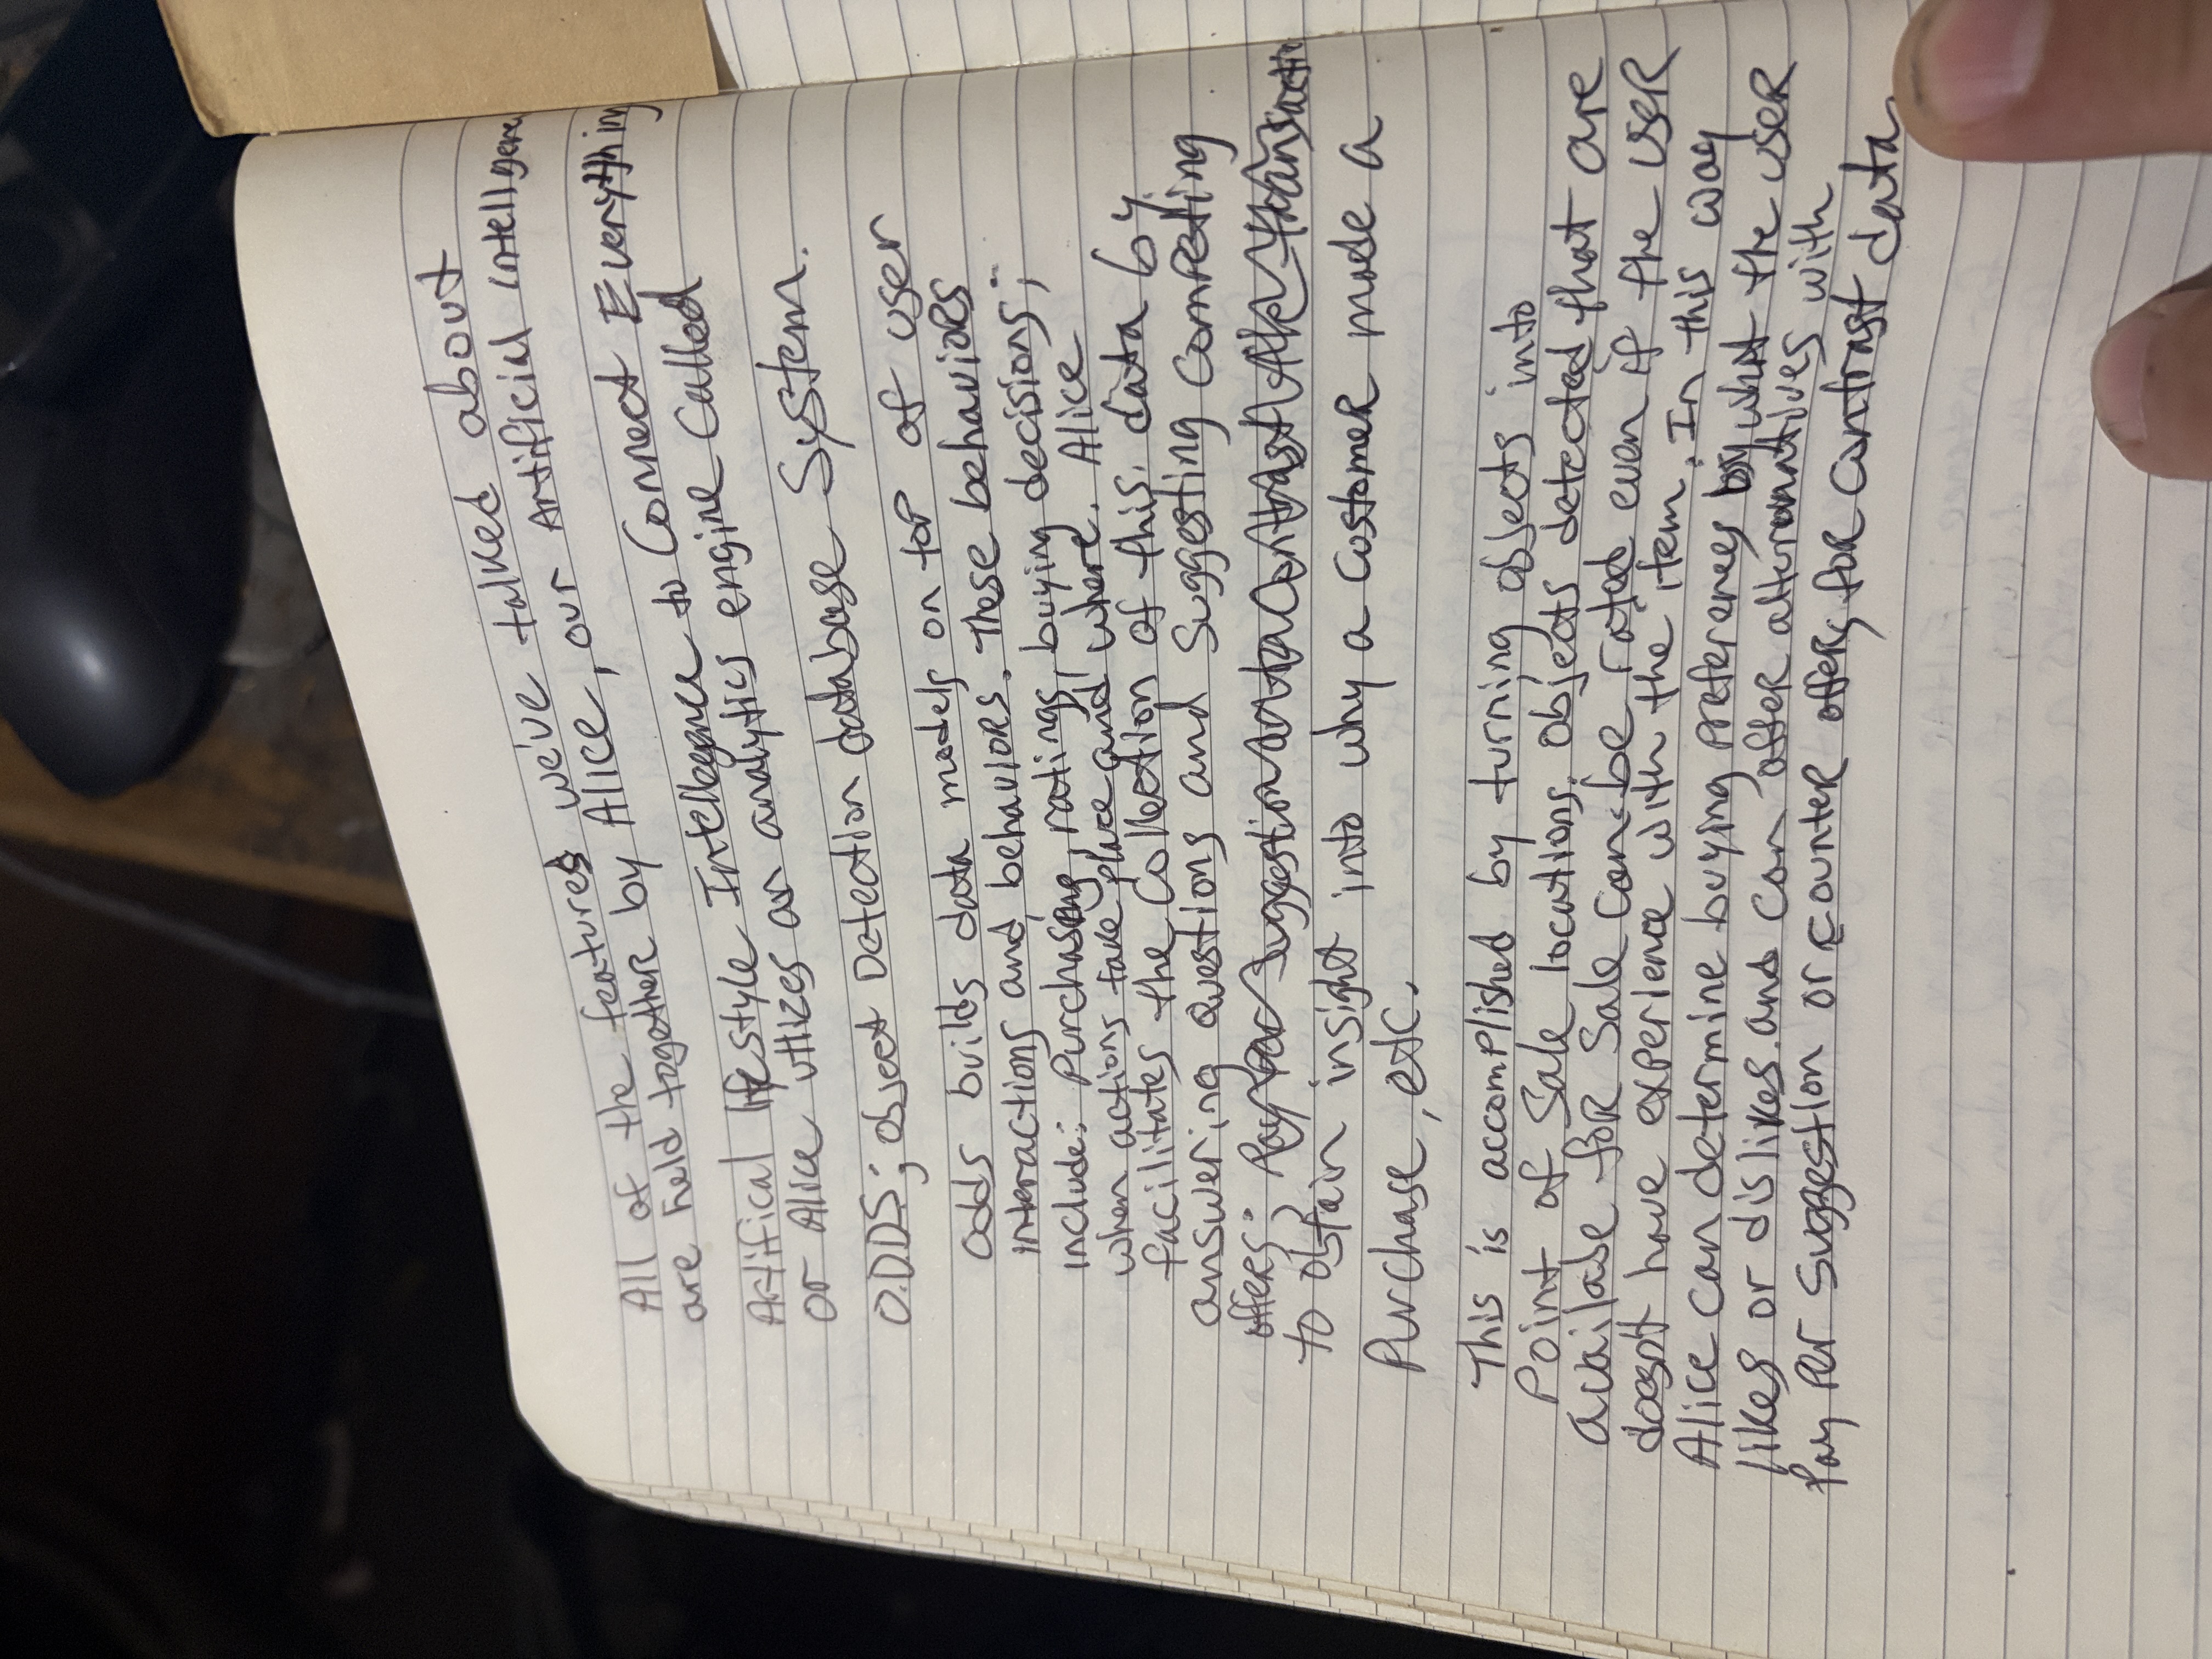 All of the features we've talked about
are held together by Alice, our Artificial intelligence
Artifical lifestyle Intellegence to Connect Everything
or Alice utlizes an analytics engine called
O.D.D.S; object Detection database System.
odds builds data models on top of user
interactions and behaviors. These behaviors
include: Purchasing, ratings, buying decisions;
when actions take place and where. Alice
facilitates the Collection of this data by
answering questions and suggesting competing
offers;
to obtain insight into why a customer made a
Purchase, etc.
This is accomplished by turning objects into
Point of Sale locations. objects detected that are
available for Sale can be rated even if the user
doesnt have experience with the item. In this way
Alice can determine buying preferences by what the user
likes or dislikes and can offer alternatives with
Pay Per Suggestion or counter offers for contrast data